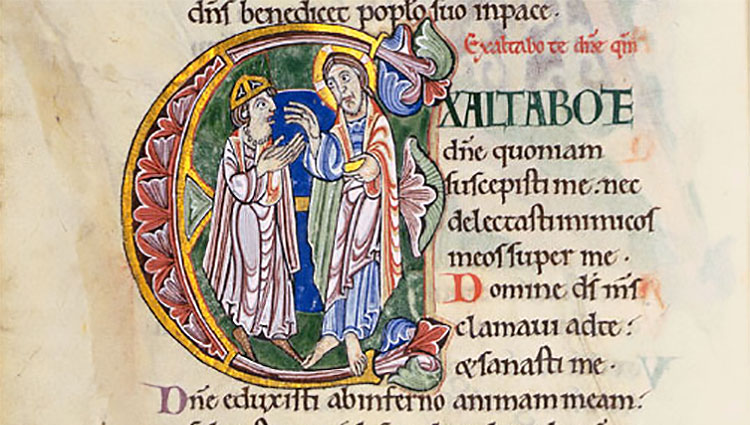 dn̄s benedicet poplo suo inpace.
Exaltabo te dn̄e qm̄
EXALTABOTE
dn̄e quoniam
suscepisti me: nec
delectasti inimicos
meos super me.
Domine d̄s m̄s
clamaui adte:
& sanasti me.
Dn̄e eduxisti ab inferno animam meam: